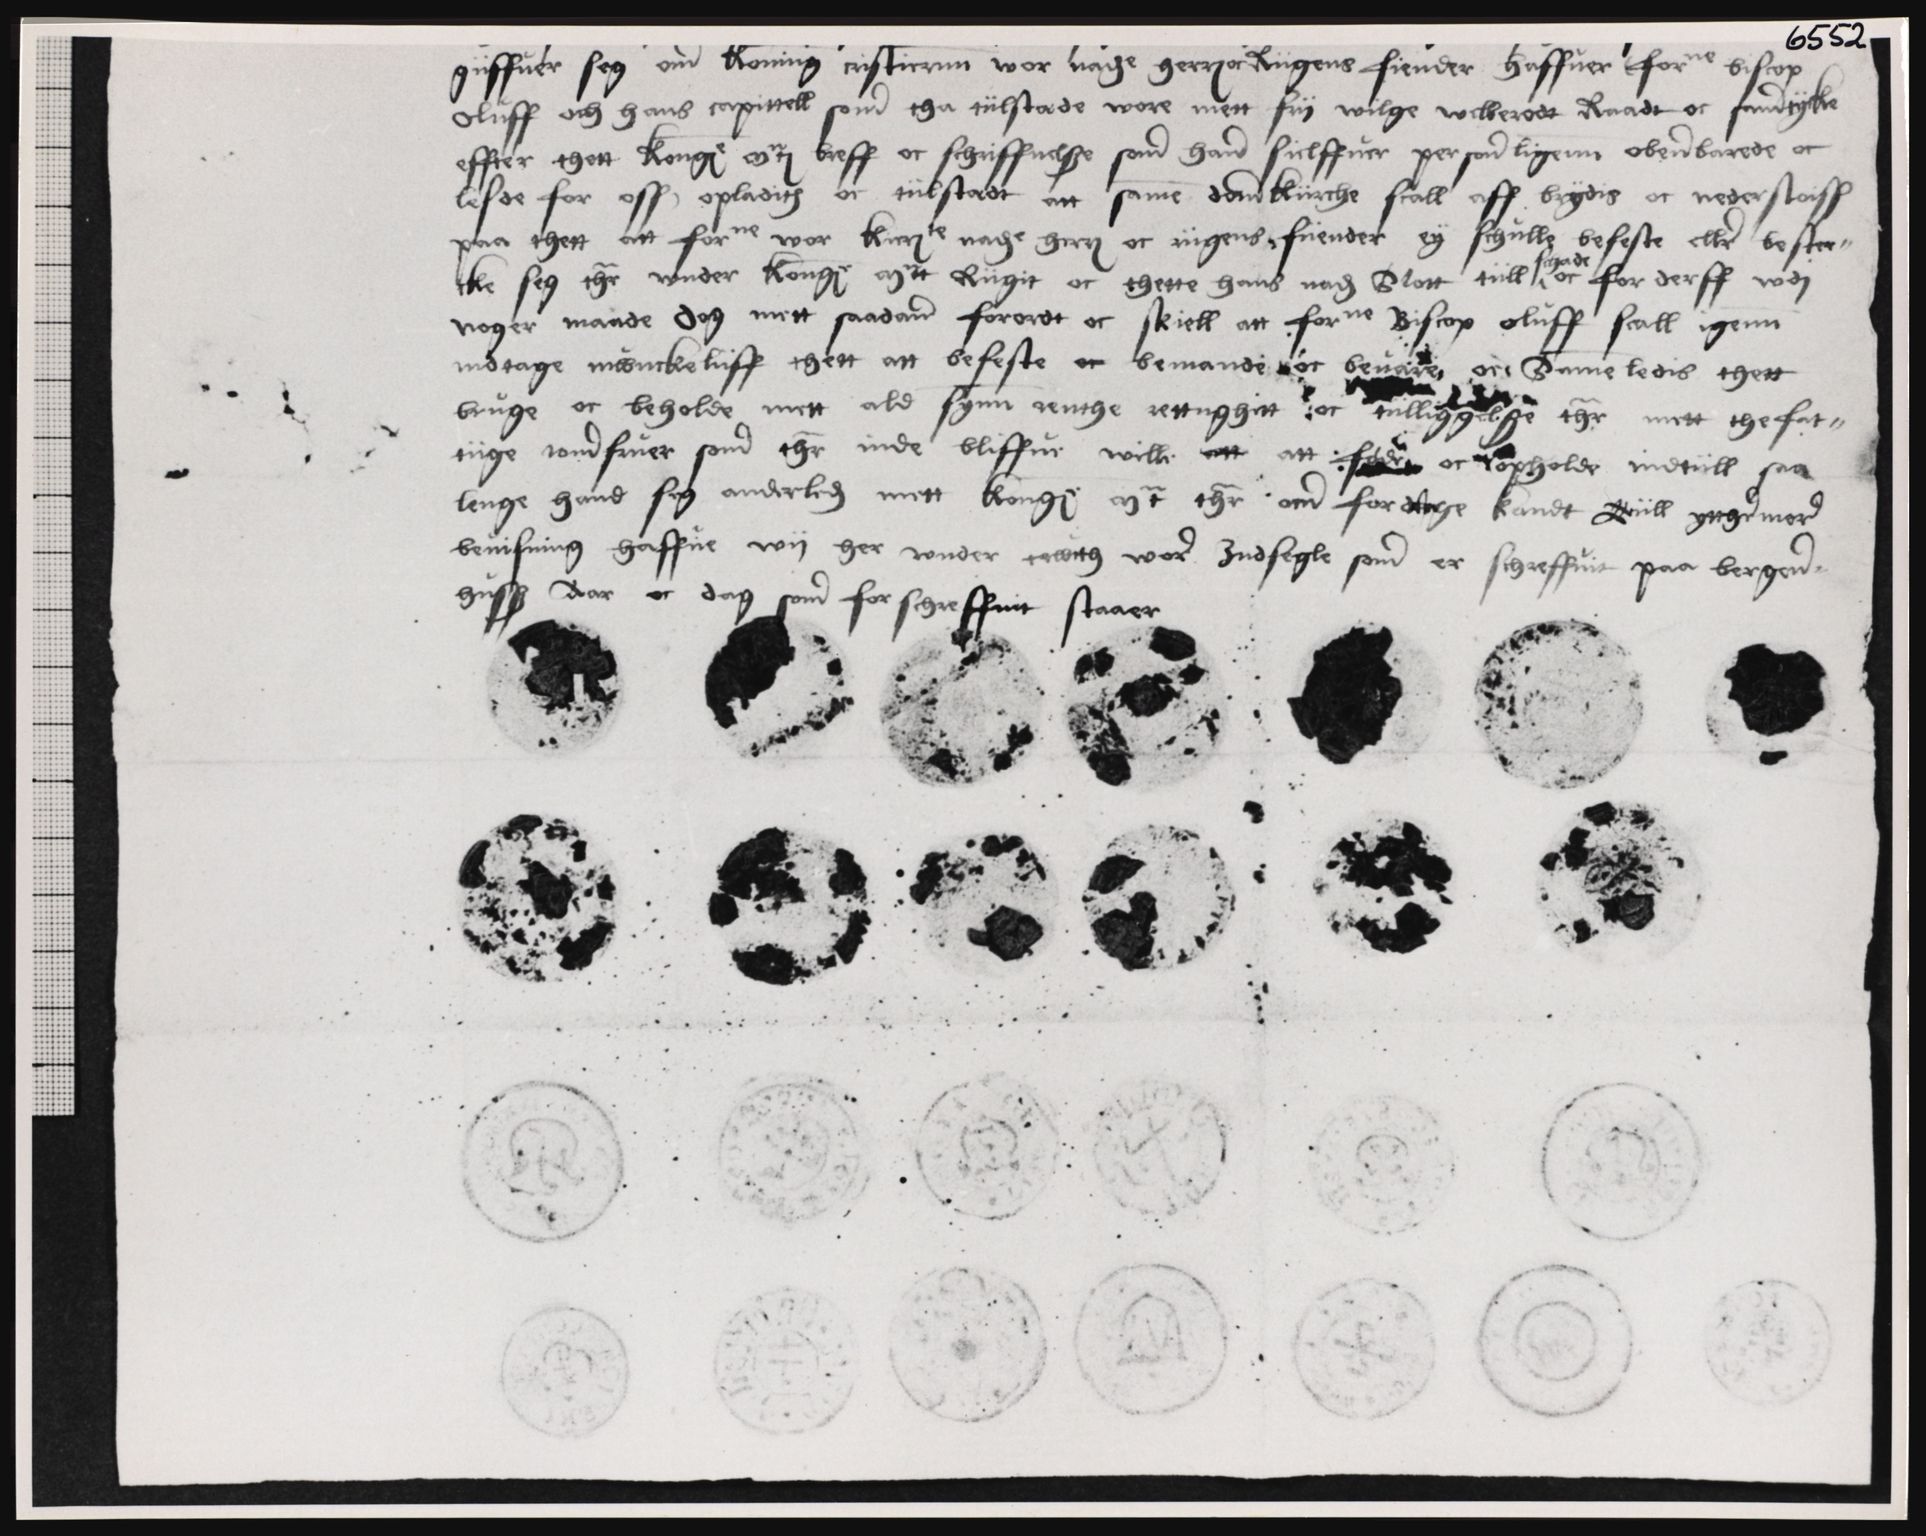 6552
giiffuer seg om Konning cristiernn wor nadhe herr oc Riigens fiender Haffuer forne biscop
Oluff och hans capittell som tha tiilstade wore mett frij wilge welberodt Raadt oc samtycke
effter thett Konge matz breff oc schriffuelsse som hand sielffuer personligenn obenbarede oc
lesde for oss opladith oc tiilstadt att same domkiirche scall aff brydis oc nederslaiss
paa thett att forne wor nadhe herr oc riigens fiiender ey schulle befeste ellr bester„
cke seg thr wnder Kong matt Riigit oc thette hans nadh Slott tiill schade oc forderff wdi
noger maade Dog mett saadan forordt oc skiell att forne Biscop oluff scall igenn
indtage mwnckeliiff thett att befeste oc bemande oc beuare oc Sameledis thett
bruge oc beholde mett ald synn renthe rettughitt oc tiilliggelsse thr mett the fat„
tiige iomfruer som thr inde bliffue wille att føde oc opholde indtiill saa
lenge hand seg anderledh mett Kong mat thr om fordrage kandt Tiill ytthermere
beuisning haffue wij her wnder tryckth wore Indsegle som er schreffuit paa bergen„
huss Aar oc dag som forschreffuit staaer